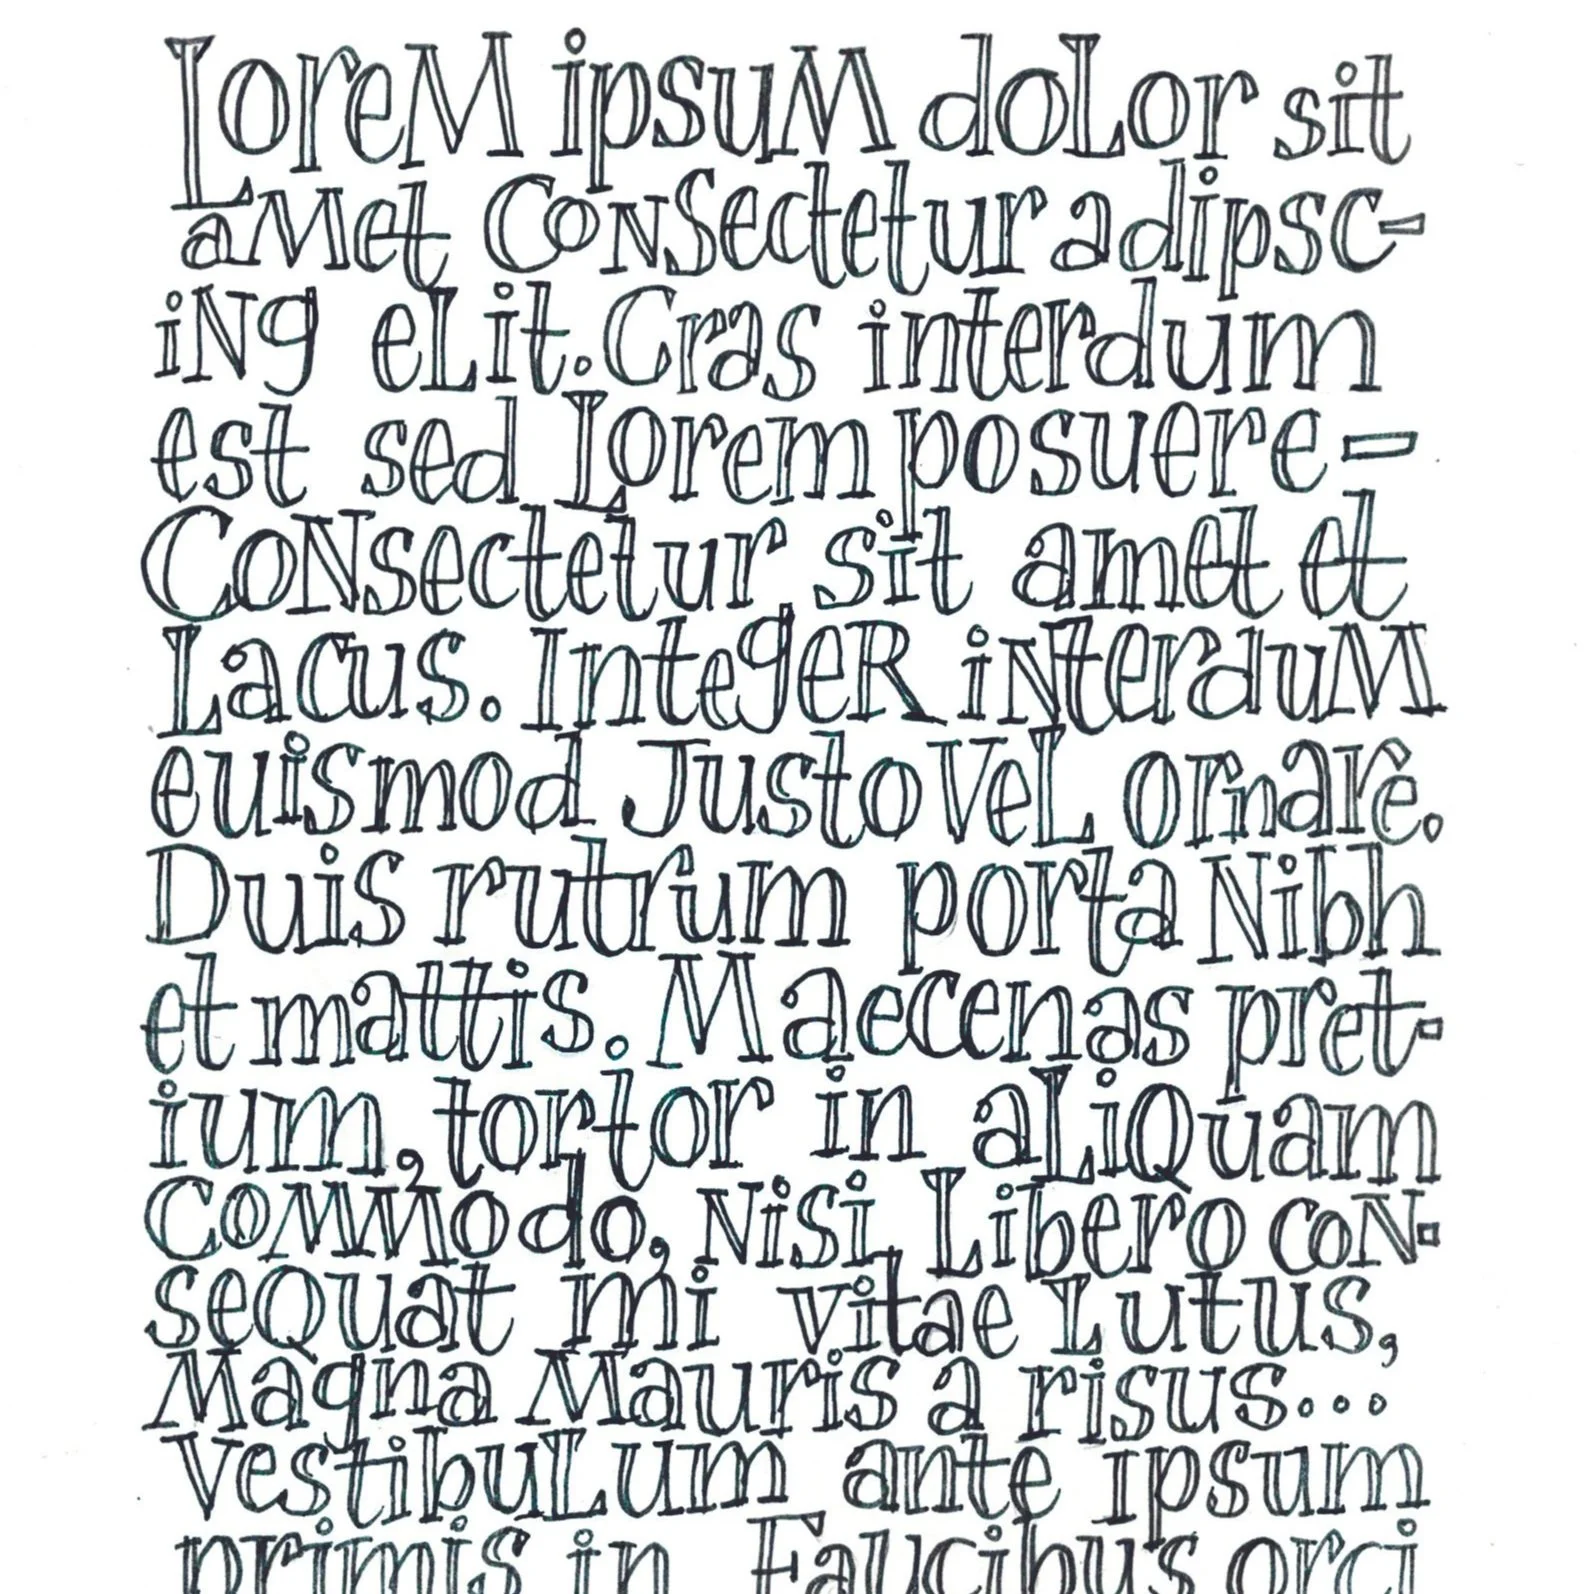 LoreM ipsuM doLor sit
aMet CoNSectetur adipsc-
iNg eLit. Cras interdum
est sed Lorem posuere-
CoNsectetur sit amet et
Lacus. IntegeR iNterduM
euismod Justo VeL ornare.
Duis rutrum porta Nibh
et mattis. Maecenas pret-
ium, tortor in aLiQuam
CoMModo, Nisi, Libero coN-
seQuat mi vitae Lutus,
Magna Mauris a risus...
VestibuLum ante ipsum
primis in Faucibus orci